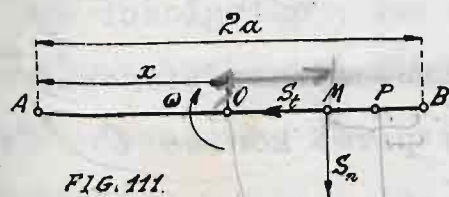 2a
x
A ω O S_t M P B
S_n
FIG. 111.